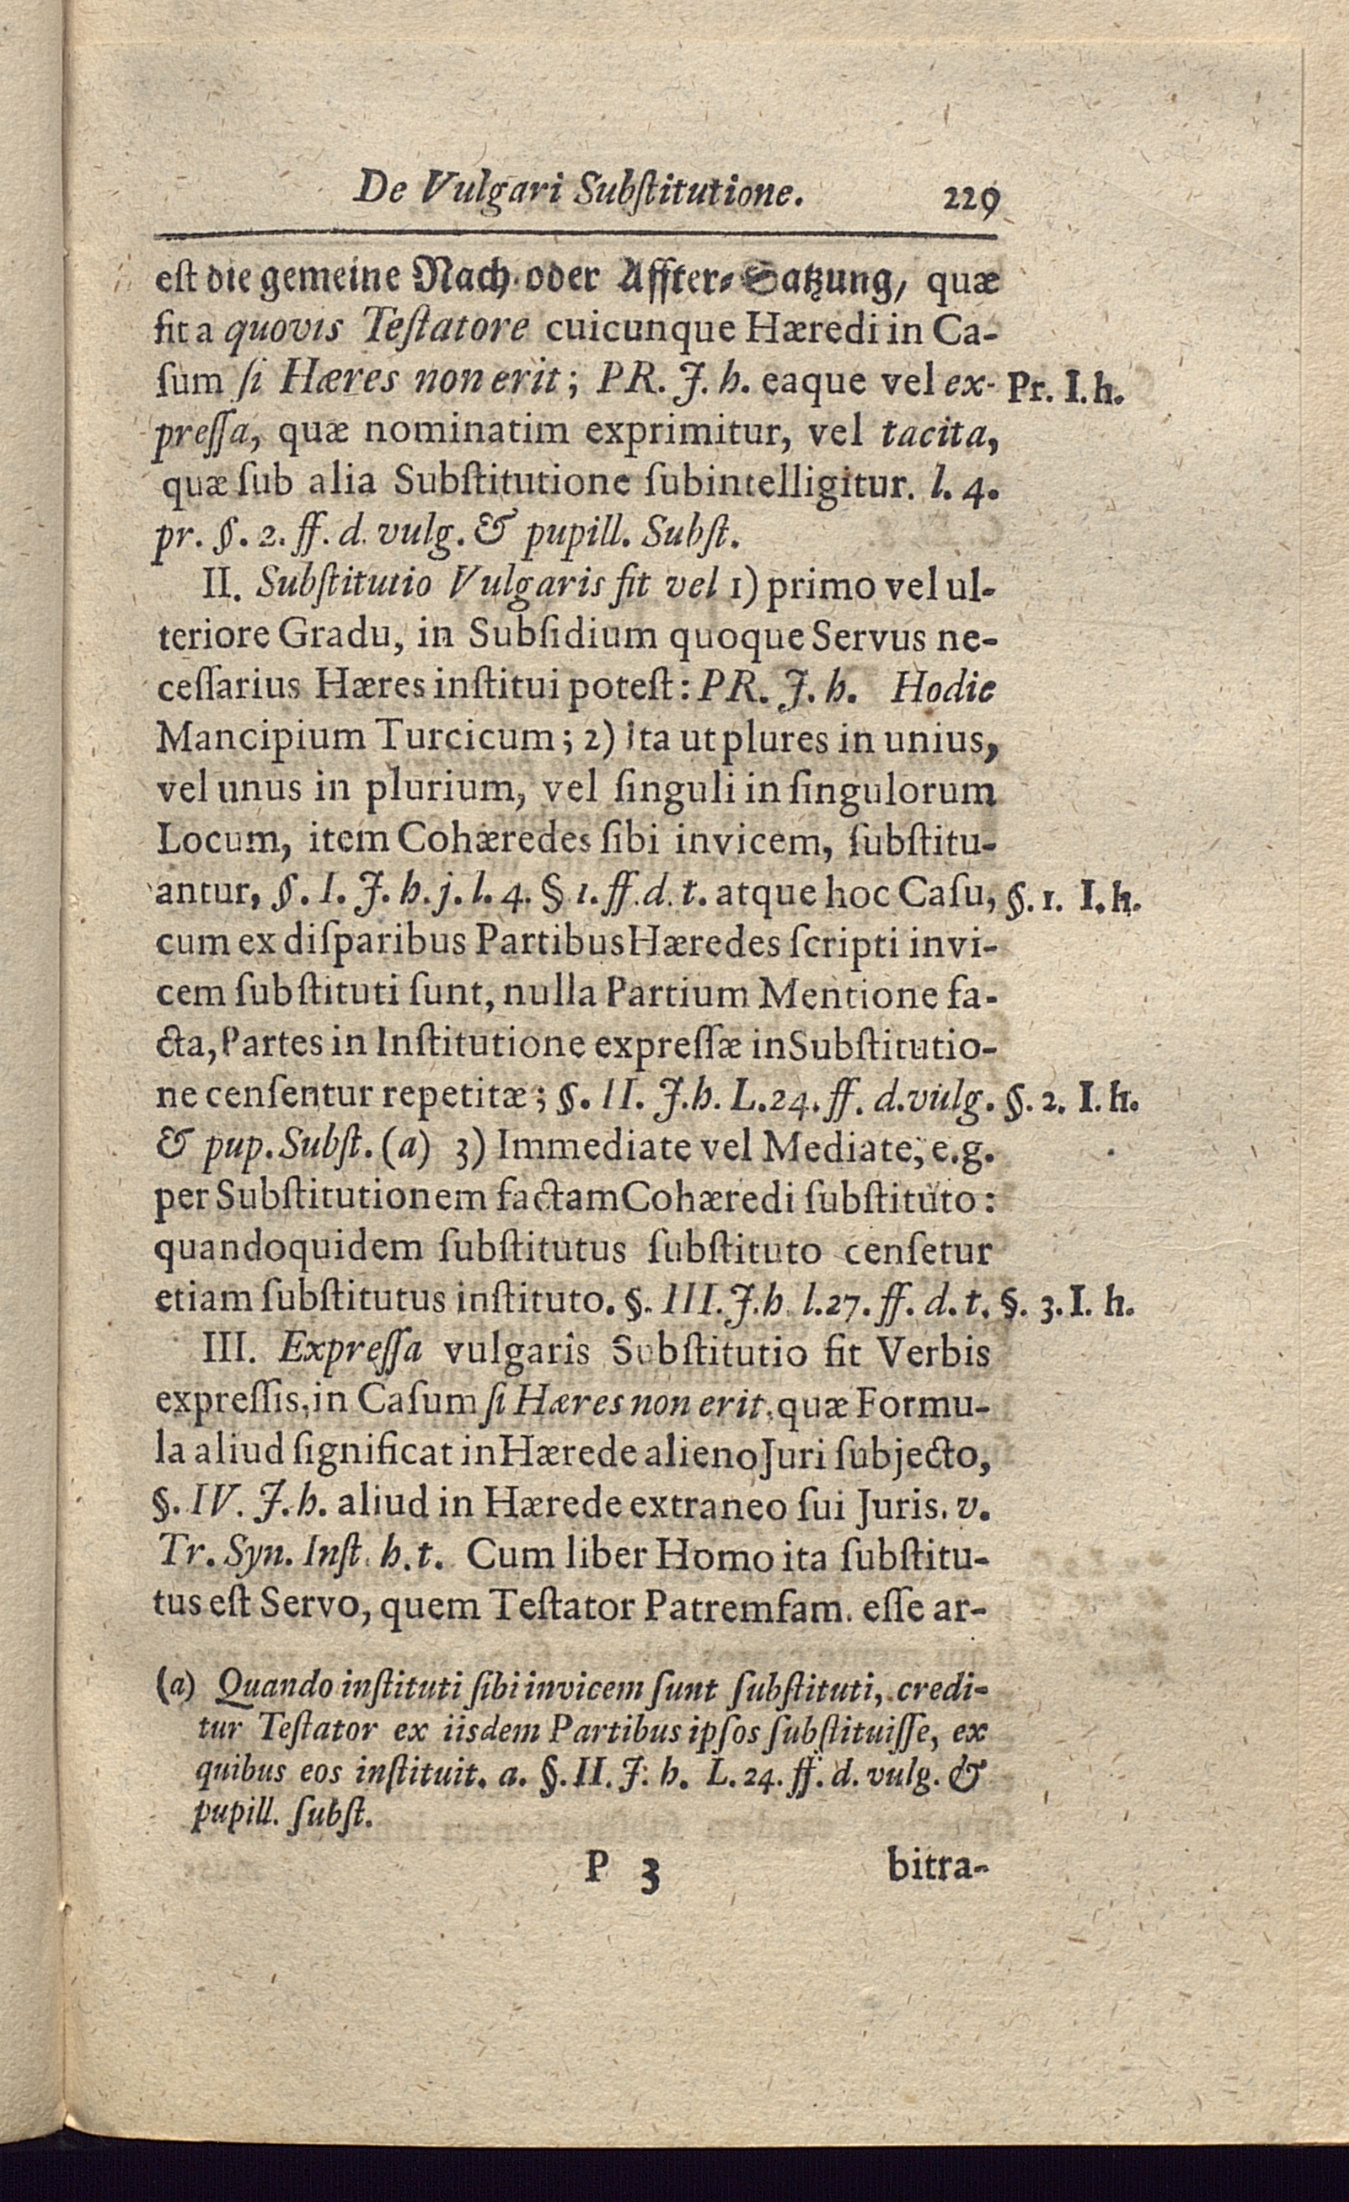 De Vulgari Subſtitutione. 229
eſt die gemeine Nach- oder Affter-Satzung, quæ
fit a quovis Teſtatore cuicunque Hæredi in Ca-
ſum ſi Hæres non erit; PR. J. h. eaque vel ex- Pr. I. h.
preſſa, quæ nominatim exprimitur, vel tacita,
quæ ſub alia Subſtitutione ſubintelligitur. l. 4.
pr. §. 2. ff. d. vulg. & pupill. Subſt.
II. Subſtitutio Vulgaris fit vel 1) primo vel ul-
teriore Gradu, in Subſidium quoque Servus ne-
ceſſarius Hæres inſtitui poteſt: PR. J. h. Hodie
Mancipium Turcicum; 2) Ita ut plures in unius,
vel unus in plurium, vel ſinguli in ſingulorum
Locum, item Cohæredes ſibi invicem, ſubſtitu-
antur, §. I. J. h. j. l. 4. § 1. ff. d. t. atque hoc Caſu, §. 1. I. h.
cum ex diſparibus Partibus Hæredes ſcripti invi-
cem ſubſtituti ſunt, nulla Partium Mentione fa-
cta, Partes in Inſtitutione expreſſæ in Subſtitutio-
ne cenſentur repetitæ; §. II. J. h. L. 24. ff. d. vulg. §. 2. I. h.
& pup. Subſt. (a) 3) Immediate vel Mediate, e.g.
per Subſtitutionem factam Cohæredi ſubſtituto:
quandoquidem ſubſtitutus ſubſtituto cenſetur
etiam ſubſtitutus inſtituto. §. III. J. h. l. 27. ff. d. t. §. 3. I. h.
III. Expreſſa vulgaris Subſtitutio fit Verbis
expreſſis, in Caſum ſi Hæres non erit, quæ Formu-
la aliud ſignificat in Hærede alieno Juri ſubjecto,
§. IV. J. h. aliud in Hærede extraneo ſui Juris. v.
Tr. Syn. Inſt. h. t. Cum liber Homo ita ſubſtitu-
tus eſt Servo, quem Teſtator Patremfam. eſſe ar-
(a) Quando inſtituti ſibi invicem ſunt ſubſtituti, credi-
tur Teſtator ex iisdem Partibus ipſos ſubſtituiſſe, ex
quibus eos inſtituit. a. §. II. J. h. L. 24. ff. d. vulg. &
pupill. ſubſt.
P 3 bitra-